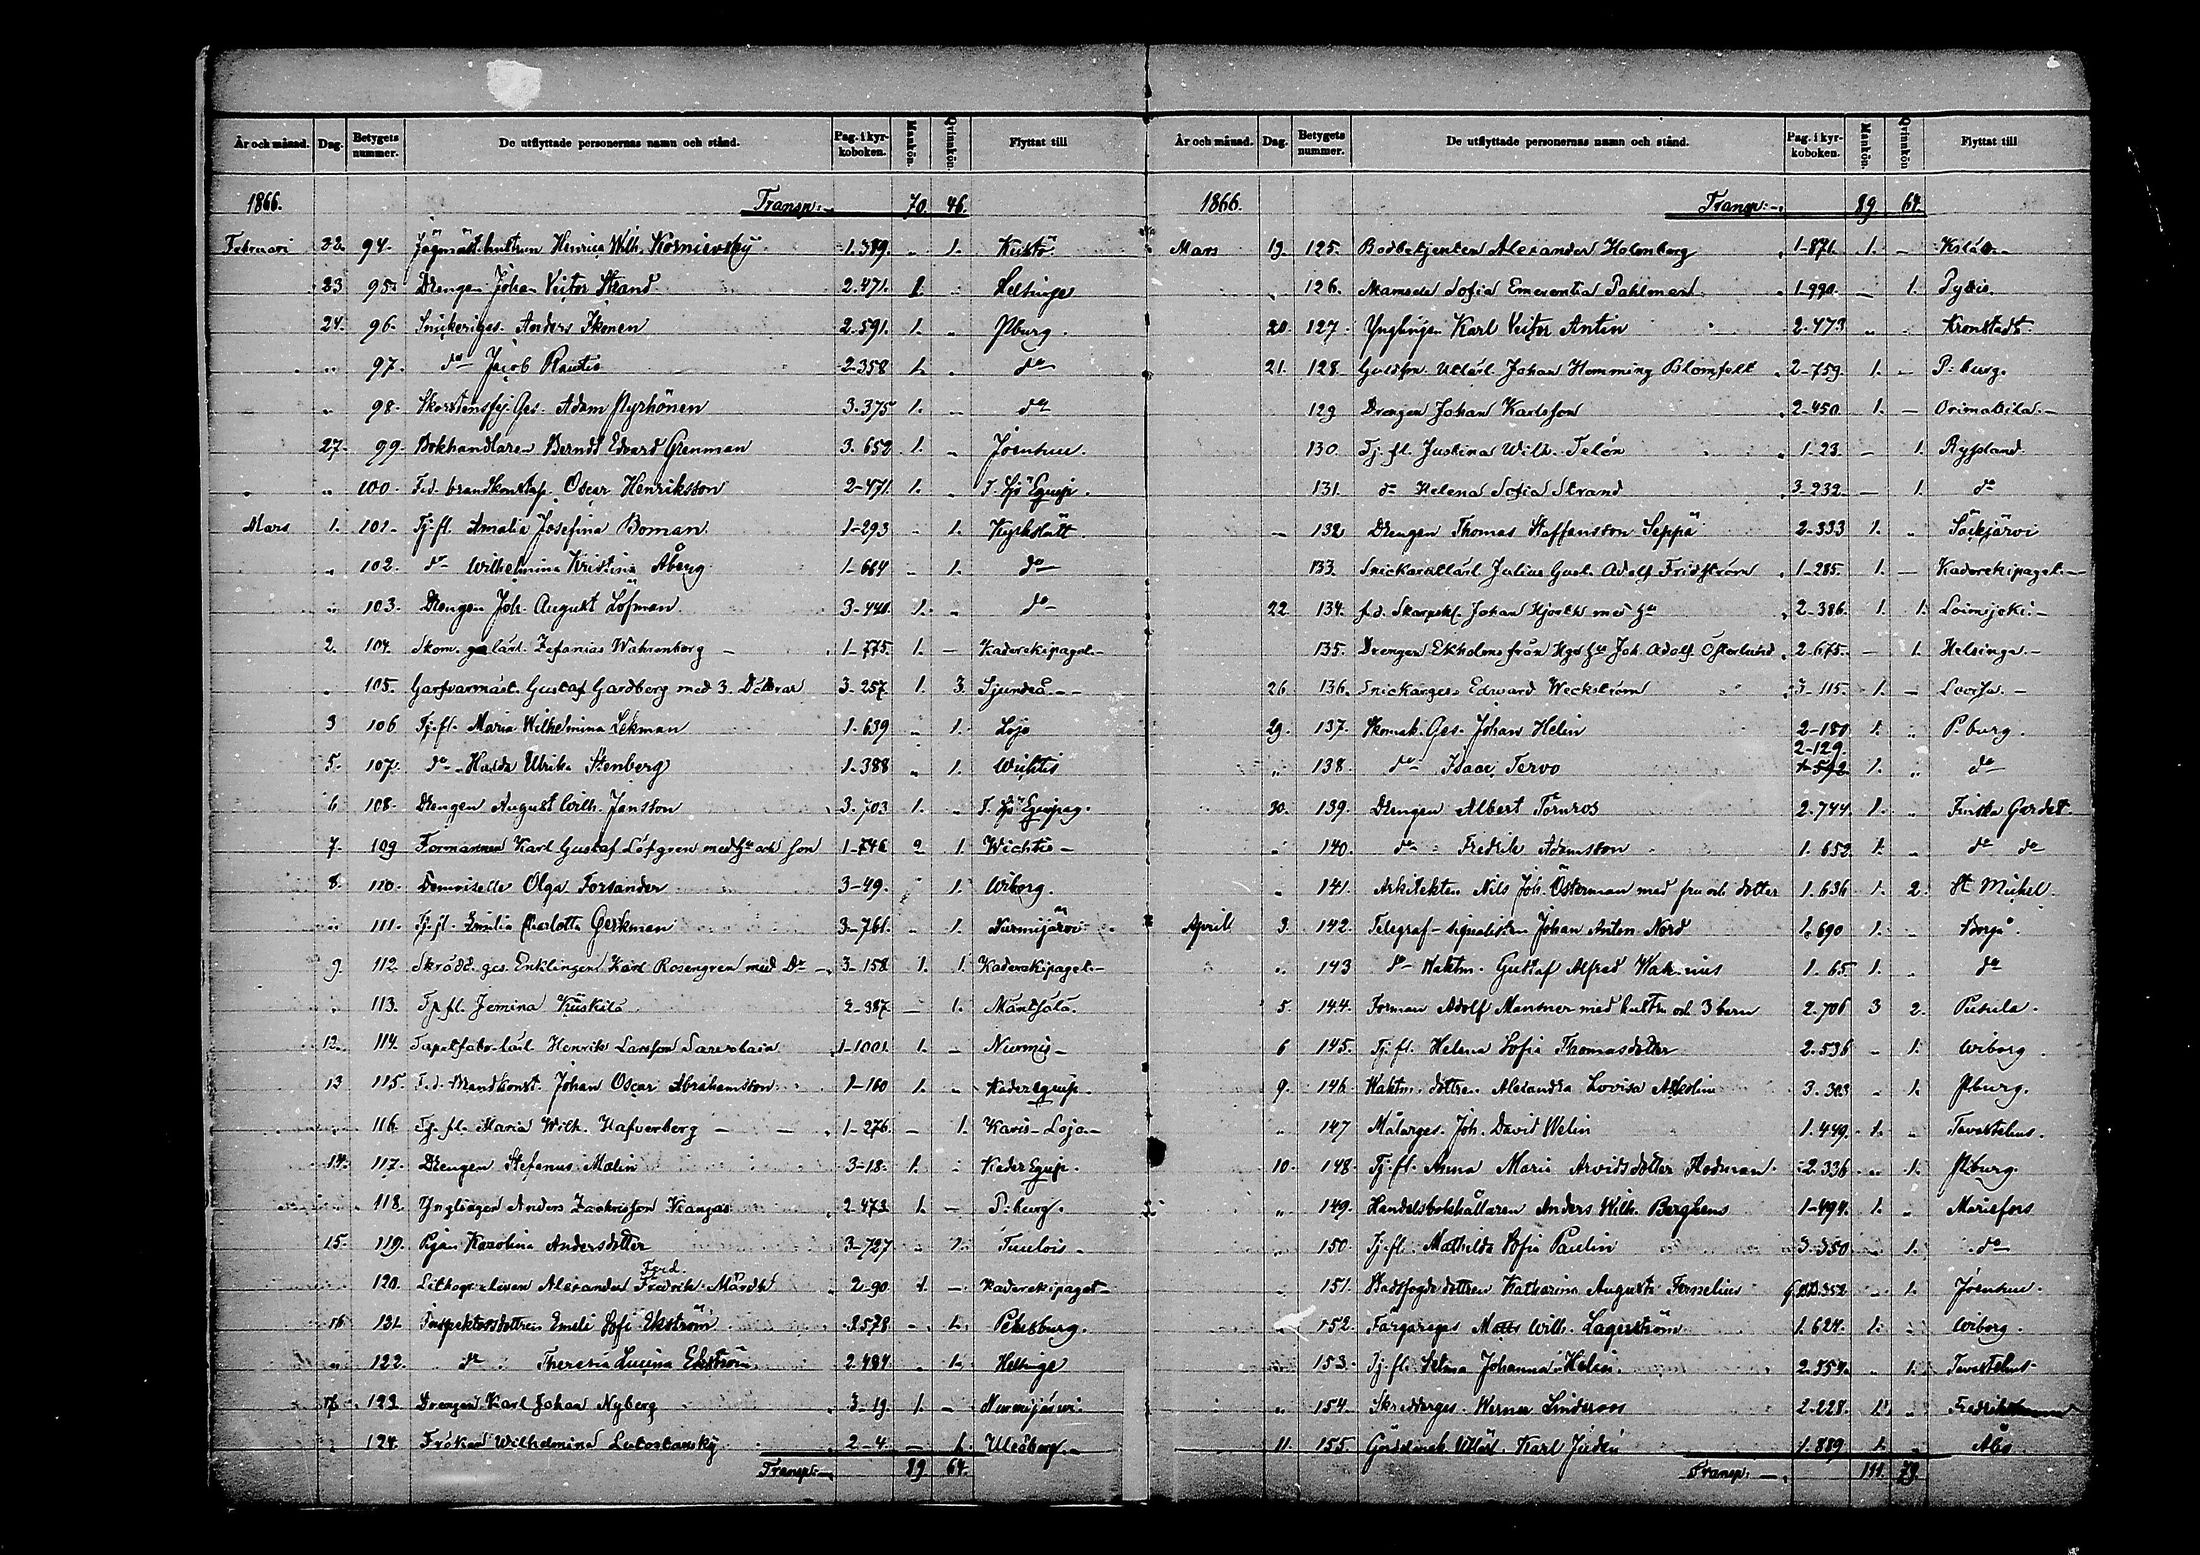 År och månad. Dag. Betygets nummer. De utflyttade personernas namn och stånd. Pag. i kyrkoboken. Mankön. Qvinnkön. Flyttat till
1866. Transp: 70. 46.
Februari 22. 94. Henrica Wilh. Kornievsky 1.389. „ 1.
23 95. Drengen Johan Victor Strand 2.471. 1. „ Helsinge
24. 96. Snickeriges. Anders Ikonen 2.591. 1. „ Pburg.
„ 97. do Jacob Rautio 2-358 1. „ do
„ 98. Ges. Adam Pyrhönen 3.375 1. „ do
27. 99. Bokhandlaren Berndt Edvard Grenman 3.652 1. „ Joensuu.
„ 100. F.d. brandkonstap. Oscar Henriksson 2-471 1. „
Mars 1. 101. Tj.fl. Amalia Josefina Boman 1-293 „ 1. Kyrkslätt.
„ 102. do Wilhelmina Kristina Åberg 1-664 „ 1. do
„ 103. Drengen Joh. August Löfman 3-440. 1. „ do
2. 104. Zefanias Wahrenberg 1-775. 1. — Kaderekipaget.
„ 105. Garfvarmäst. Gustaf Gardberg med 3. Döttrar 3-257 1. 3. Sjundeå
3 106 Tj.fl. Maria Wilhelmina Lekman 1-639 „ 1. Lojo
5. 107. do Hulda Ulrika Stenberg 1-388 „ 1. Wichtis
6 108. Drengen August Wilh. Jansson 3.703 1. „
7. 109 Formannen Karl Gustaf Löfgren med Hu och son 1-746 2 1. Wichtis
8. 110. Demoiselle Olga Forsander 3-49. 1. Wiborg.
„ 111. Tj.fl. Emilia Charlotta Gerkman 3-761. „ 1. Nurmijärvi
9. 112. Skrädd. ges. Enklingen Karl Rosengren med Dr 3-158 1. 1. Kaderekipaget.
„ 113. Tj.fl. Jemina Kuskila 2-387 — 1. Mäntsälä.
12. 114. Henrik Larsson 1-1001. 1. — Nurmis
13 115. F.d. Brandkonst. Johan Oscar Abrahamsson 1-160 1. „ Kaderequip.
„ 116. Tj.fl. Maria Wilh. Hafverberg 1-276 — 1. Karis-Lojo.
14. 117. Drengen Stefanus Malin 3-18. 1. „ Kader Equip.
„ 118. Ynglingen Anders Zackrisson Kangas 2.473. 1. — P:burg.
15. 119. Pigan Karolina Andersdotter 3-727 „ 1. Tuulois
120. Alexander Fredrik Ferd. 2-90 1. — Kaderekipaget
16 121. Inspektorsdottren Emeli Sofi Ekström 3.578 „ 1. Petersburg.
„ 122. do Theresia Lucina Ekström 2.484 „ 1. Helsinge
17. 123. Drengen Karl Johan Nyberg 3-19 1. — Nurmijärvi.
„ 124. Fröken Wilhelmina Lutostansky 2-4. — 1. Uleåborg.
Transp: 89 64.
År och månad. Dag. Betygets nummer. De utflyttade personernas namn och stånd. Pag. i kyrkoboken. Mankön. Qvinnkön Flyttat till
1866. Transp: 89. 64.
Mars 19. 125. Bodbetjenten Alexander Holmberg 1-871. 1. —
„ 126. Mamsell Sofia Emerentia Pahlman 1-990. — 1. Pyttis.
20. 127. Ynglingen Karl Victor Antin 2-473 „ „ Kronstadt.
21. 128. Johan Hemming 2-759. 1. — P:burg.
129 Drengen Johan Karlsson 2-450. 1. — Orimattila.
130. Tj.fl. Justina Wilh. Telén 1-23. — 1. Ryssland
131. do Helena Sofia Strand 3-232. — 1. do
132 Drengen Thomas Staffansson Seppä 2-333 1. „ Säkjärvi
133. Snickarelärl. Julius Gust. Adolf Fridström 1-285. 1. — Kaderekipaget.
22 134. f.d. Skarpsk. Johan Hjorth med Hu 2-386. 1. 1. Loimijoki.
135. Joh. Adolf Österlund 2-675. — 1. Helsinge.
26. 136. Snickarges. Edward Weckström 3-115. 1. — Lovisa.
29. 137. Skomak. Ges. Johan Helin 2-180 1. „ P.burg.
„ 138. do Isaac Tervo 2-129. 1. „ do
30. 139. Drengen Albert Törnroos 2.744. 1. „ Finska Gardet.
„ 140. do Fredrik Adamsson 1.652. 1. „ do do
„ 141. Arkitekten Nils Joh. Österman med fru och dotter 1.636 1. 2. St Michel.
April 3. 142. Telegraf-signalisten Johan Anton Nord 1.690 1. „ Borgå.
„ 143 do Waktm. Gustaf Alfred 1.65. 1. „ do
5. 144. Forman Adolf Mansner med hustru och 3 barn 2.706 3 2. Pusula.
6 145. Tj.fl. Helena Sofia Thomasdotter 2.536 „ 1. Wiborg.
9. 146. Waktm. dottren Alexandra Lovisa 3.303 „ 1. Pburg.
„ 147 Målarges. Joh. David Welin 1.449. 1. „ Tavastehus.
10. 148 Tj.fl. Anna Maria Arvidsdotter Hedman 2.336 „ 1. Pburg.
„ 149. Handelsbokhållaren Anders Wilh. Berghem 1-494. 1. „ Mariefors
„ 150. Tj.fl. Mathilda Sofia Paulin 3.350 „ 1. do
„ 151. Stadsfogdedottren Katharina Augusta Forselius „ 1. Joensuu.
„ 152. Färgareges Wilh. Lagerström 1.624. 1. „ Wiborg.
„ 153. Tj.fl. Selma Johanna Helin 2.554. „ 1. Tavastehus
„ 154. Skreddarges. Werner Linderoos 2.228. 1. „
11. 155. Karl 1.889 1. „ Åbo
Transp: 111. 79.